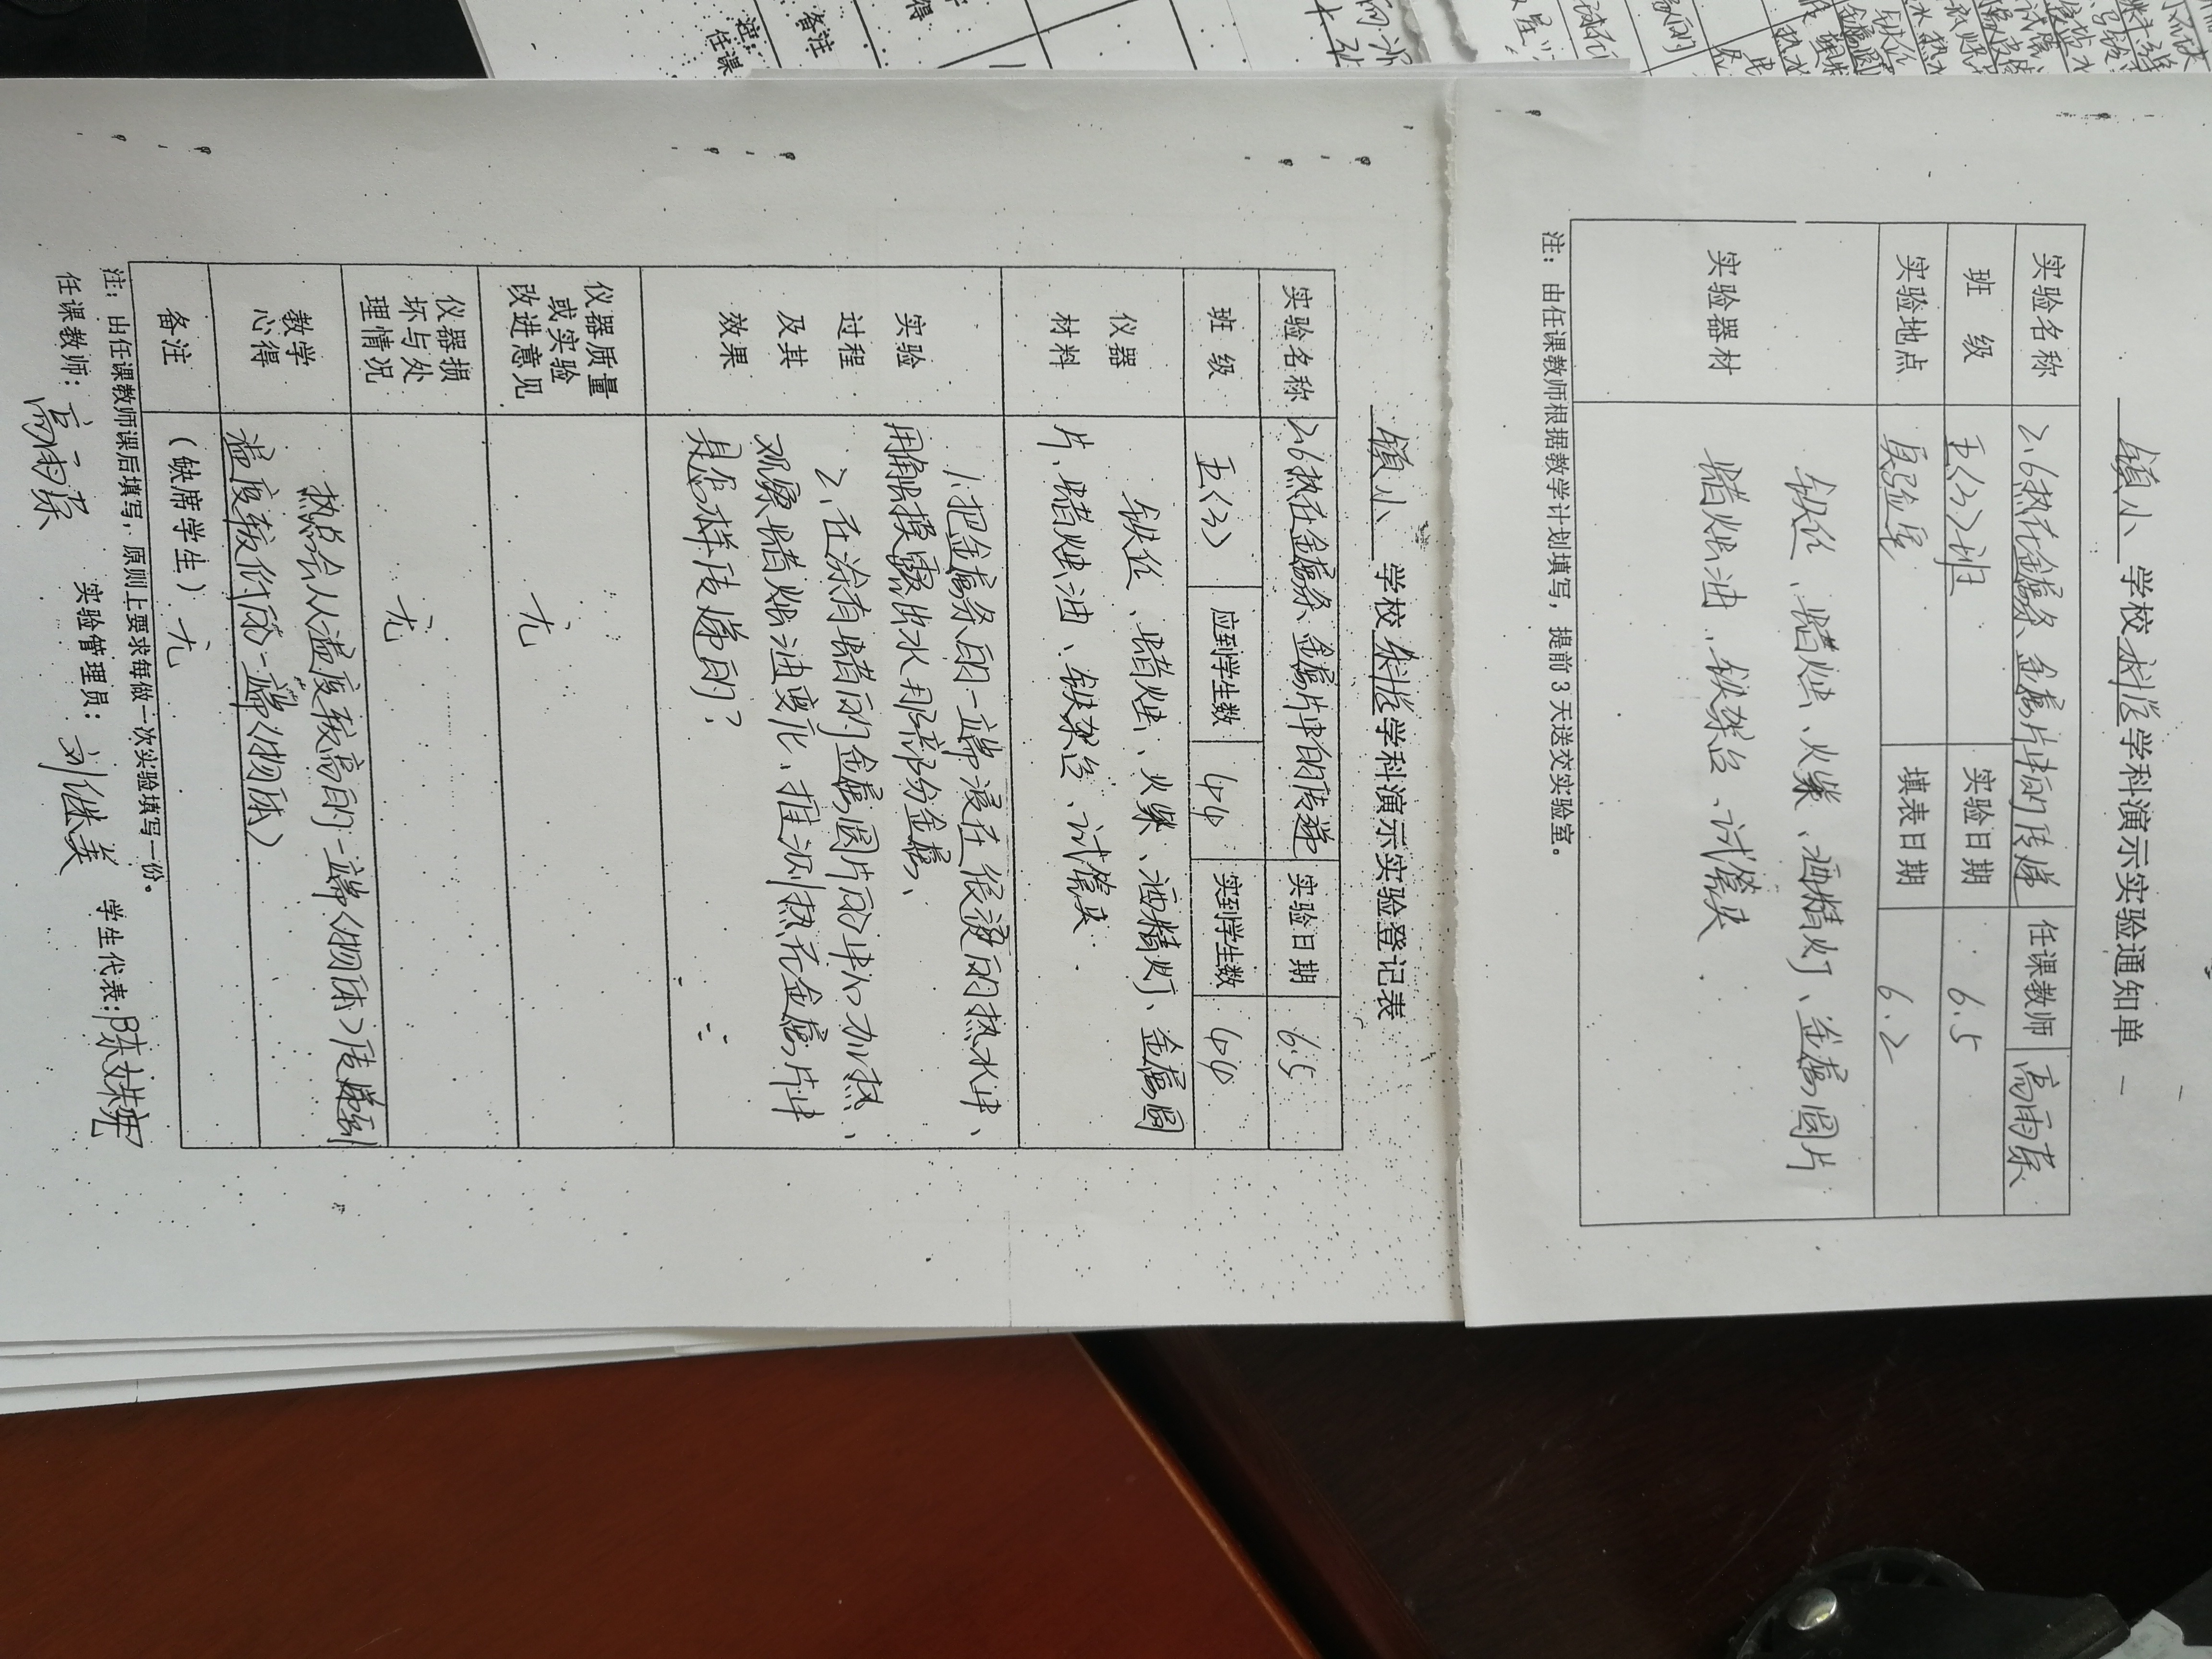 镇小 学校 科学 学科演示实验通知单
实验名称 2.6热在金属条、金属片中的传递 任课教师 高雨霖
班 级 五(3)班 实验日期 6.5
实验地点 实验室 填表日期 6.2
实验器材 铁丝、蜡烛、火柴、酒精灯、金属圆片
蜡烛油、铁架台、试管夹
注: 由任课教师根据教学计划填写, 提前3天送交实验室。
镇小 学校 科学 学科演示实验登记表
实验名称 2.6热在金属条、金属片中的传递 实验日期 6.5
班 级 五(3) 应到学生数 44 实到学生数 44
仪器 铁丝、蜡烛、火柴、酒精灯、金属圆
材料 片、蜡烛油、铁架台、试管夹
实验 1.把金属条的一端浸在很烫的热水中、
过程 用触摸露出水那部分金属、
及其 2.在涂有蜡的金属圆片的中心加热、
效果 观察蜡烛油变化、推测热在金属片中
是怎样传递的?
仪器质量
或实验
改进意见 无
仪器损
坏与处
理情况 无
教学 热总会从温度较高的一端(物体)传递到
心得 温度较低的一端(物体)
备注 (缺席学生) 无
注: 由任课教师课后填写, 原则上要求每做一次实验填写一份。
任课教师: 高雨霖 实验管理员: 刘继美 学生代表: